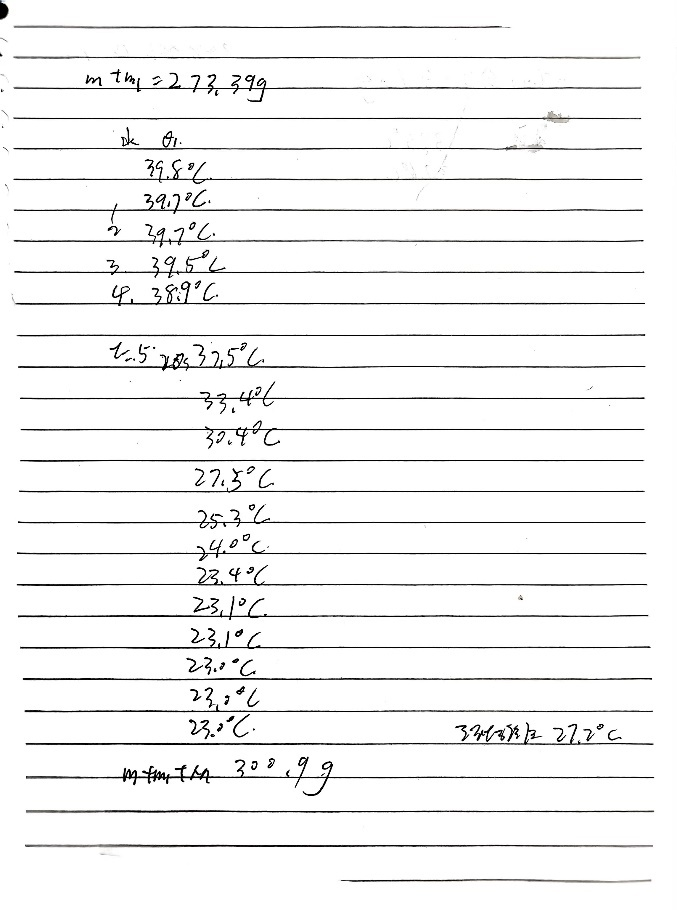 m+m₁=273.39g
水 θ₁.
39.8°C.
1 39.7°C.
2 39.7°C.
3. 39.5°C
4. 38.9°C.
t=5 37.5°C
33.4°C
30.4°C
27.5°C
25.3°C
24.0°C.
23.4°C
23.1°C.
23.1°C
23.0°C
23.0°C
23.0°C.
27.2°C
m+m₁+M 300.9g